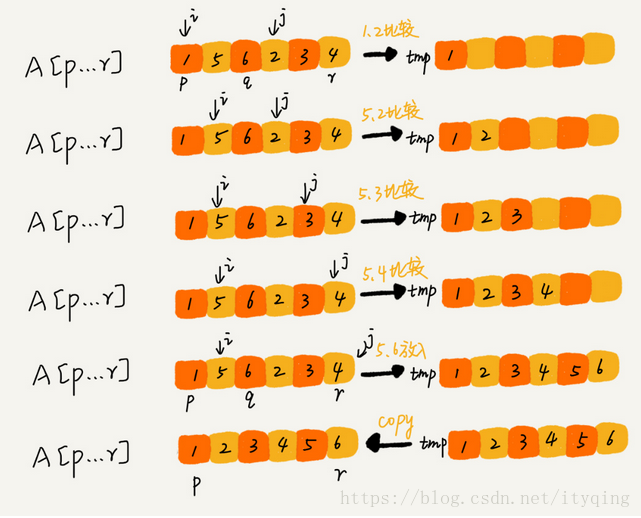 i j
A[p...r] 1 5 6 2 3 4 1.2比较 tmp 1
p q r
i j
A[p...r] 1 5 6 2 3 4 5.2比较 tmp 1 2
i j
A[p...r] 1 5 6 2 3 4 5.3比较 tmp 1 2 3
i j
A[p...r] 1 5 6 2 3 4 5.4比较 tmp 1 2 3 4
i j
A[p...r] 1 5 6 2 3 4 5.6放入 tmp 1 2 3 4 5 6
p q r
A[p...r] 1 2 3 4 5 6 copy tmp 1 2 3 4 5 6
p r
https://blog.csdn.net/ityqing